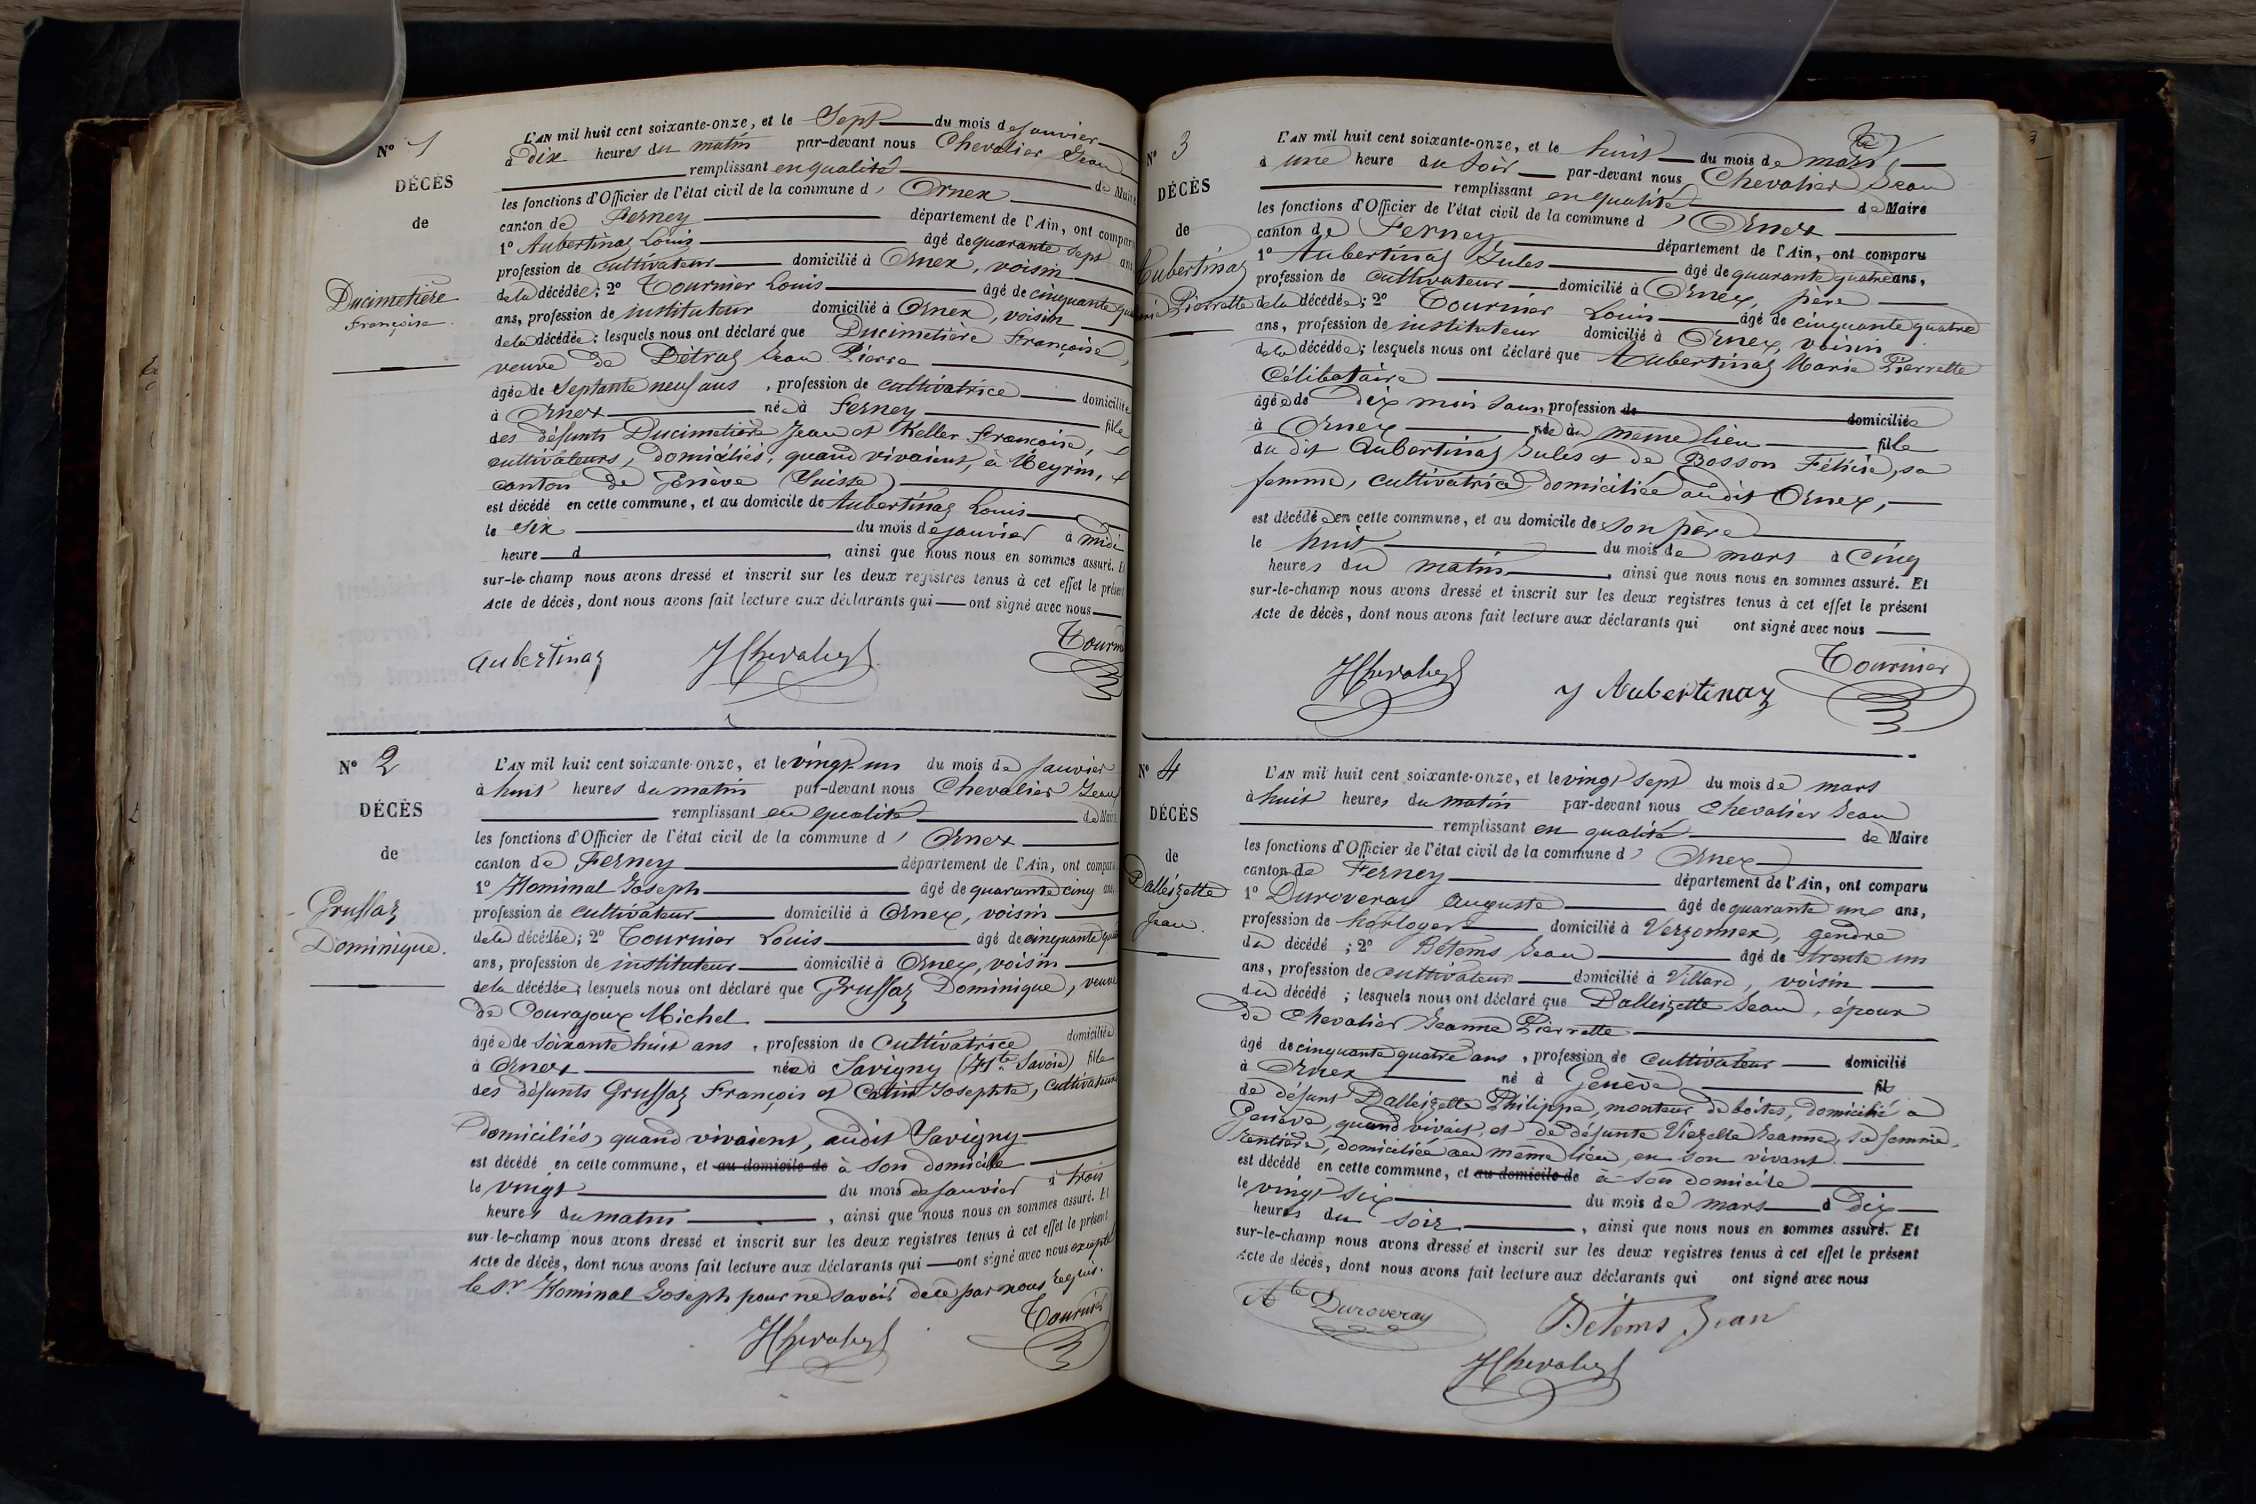 N° 1
DÉCÈS
de
Ducimetière
françoise.
L'AN mil huit cent soixante-onze, et le Sept du mois de janvier
à dix heures du matin par-devant nous Chevalier Jean
remplissant en qualité de Maire
les fonctions d'Officier de l'état civil de la commune d' Ornex
canton de Ferney département de l'Ain, ont comparu
1° Aubertinaz Louis âgé de quarante sept ans
profession de cultivateur domicilié à Ornex, voisin
de la décédée; 2° Tournier Louis âgé de cinquante qua
ans, profession de instituteur domicilié à Ornex, voisin
de la décédée; lesquels nous ont déclaré que Ducimetière françoise,
veuve de Détraz Jean Pierre
âgée de septante neuf ans, profession de cultivatrice domiciliée
à Ornex née à Ferney fille
des défunts Ducimetière Jean et Keller françoise,
cultivateurs, domiciliés, quand vivaient, à Meyrin,
canton de Genève (Suisse)
est décédé en cette commune, et au domicile de Aubertinaz Louis
le six du mois de janvier à midi
heure d , ainsi que nous nous en sommes assuré. Et
sur-le-champ nous avons dressé et inscrit sur les deux registres tenus à cet effet le présent
Acte de décès, dont nous avons fait lecture aux déclarants qui ont signé avec nous
Aubertinaz JChevalier Tourni
N° 2
DÉCÈS
de
Gruffaz
Dominique.
L'AN mil huit cent soixante-onze, et le vingt un du mois de janvier
à huit heures du matin par-devant nous Chevalier Jean
remplissant en qualité de Maire
les fonctions d'Officier de l'état civil de la commune d' Ornex
canton de Ferney département de l'Ain, ont comparu
1° Hominal Joseph âgé de quarante cinq ans,
profession de cultivateur domicilié à Ornex, voisin
de la décédée; 2° Tournier Louis âgé de cinquante qua
ans, profession de instituteur domicilié à Ornex, voisin
de la décédée; lesquels nous ont déclaré que Gruffaz Dominique, veuve
de Courajoux Michel
âgée de soixante huit ans, profession de Cultivatrice domiciliée
à Ornex née à Savigny (Hte Savoie) fille
des défunts Gruffaz François et Catin Josephte, cultivateurs
domiciliés, quand vivaient, audit Savigny
est décédé en cette commune, et au domicile de à son domicile
le vingt du mois de janvier à trois
heures du matin , ainsi que nous nous en sommes assuré. Et
sur-le-champ nous avons dressé et inscrit sur les deux registres tenus à cet effet le présent
Acte de décès, dont nous avons fait lecture aux déclarants qui ont signé avec nous excepté
le Sr Hominal Joseph pour ne savoir de ce par nous requis.
JChevalier Tournier
N° 3
DÉCÈS
de
Aubertinaz
Pierrette
L'AN mil huit cent soixante-onze, et le huit du mois de mars
à une heure du soir par-devant nous Chevalier Jean
remplissant en qualité de Maire
les fonctions d'Officier de l'état civil de la commune d' Ornex
canton de Ferney département de l'Ain, ont comparu
1° Aubertinaz Jules âgé de quarante quatre ans,
profession de cultivateur domicilié à Ornex, père
de la décédée; 2° Tournier Louis âgé de cinquante quatre
ans, profession de instituteur domicilié à Ornex, voisin
de la décédée; lesquels nous ont déclaré que Aubertinaz Marie Pierrette
Célibataire
âgée de dix mois sans, profession de domiciliée
à Ornex née au même lieu fille
du dit Aubertinaz Jules et de Bosson Félicie, sa
femme, cultivatrice, domiciliée audit Ornex,
est décédée en cette commune, et au domicile de son père
le huit du mois de mars à cinq
heures du matin , ainsi que nous nous en sommes assuré. Et
sur-le-champ nous avons dressé et inscrit sur les deux registres tenus à cet effet le présent
Acte de décès, dont nous avons fait lecture aux déclarants qui ont signé avec nous
JChevalier J Aubertinaz Tournier
N° 4
DÉCÈS
de
Dalleizette
Jean.
L'AN mil huit cent soixante-onze, et le vingt sept du mois de mars
à huit heures du matin par-devant nous Chevalier Jean
remplissant en qualité de Maire
les fonctions d'Officier de l'état civil de la commune d' Ornex
canton de Ferney département de l'Ain, ont comparu
1° Duroveray Auguste âgé de quarante un ans,
profession de horloger domicilié à Verzonnex, gendre
du décédé ; 2° Bétems Jean âgé de trente un
ans, profession de cultivateur domicilié à Villard, voisin
du décédé ; lesquels nous ont déclaré que Dalleizette Jean, époux
de Chevalier Jeanne Pierrette
âgé de cinquante quatre ans, profession de Cultivateur domicilié
à Ornex né à Genève fils
de défunt Dalleizette Philippe, monteur de boîtes, domicilié à
Genève, quand vivait, et de défunte Viezelle Jeanne, sa femme,
rentière, domiciliée au même lieu, en son vivant.
est décédé en cette commune, et au domicile de à son domicile
le vingt six du mois de mars à dix
heures du soir , ainsi que nous nous en sommes assuré. Et
sur-le-champ nous avons dressé et inscrit sur les deux registres tenus à cet effet le présent
Acte de décès, dont nous avons fait lecture aux déclarants qui ont signé avec nous
Ate Duroveray Bétems Jean
JChevalier